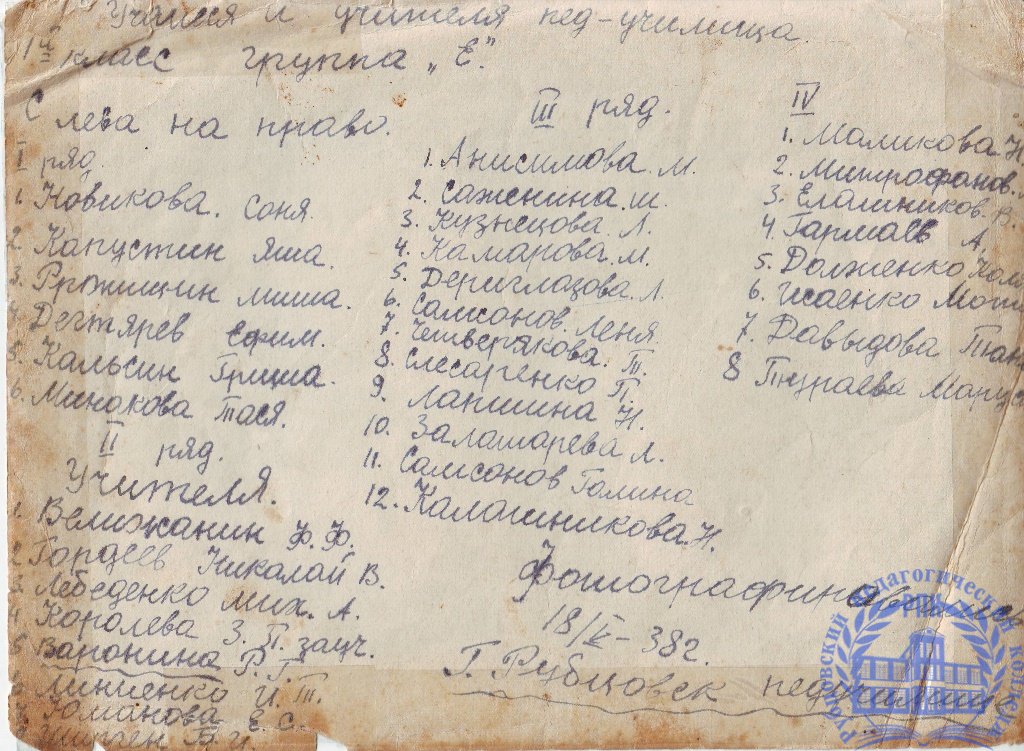 Учащиеся и учителя пед-училища.
1й класс группа „Е".
С лева на право.
I ряд.
1. Новикова. Соня.
2. Капустин Яша.
3. миша.
4. Дегтярев Ефим.
5. Кальсин Гриша.
6. Минакова Тася.
II ряд.
Учителя.
1. Велижанин Ф.Ф.
2 Гордеев Николай В.
3. Лебеденко Мих. А.
4 Королева З. П. зауч.
5 Варонина Р. Г.
6 Линиенко И. Т.
7 Романова Е. С.
В. И.
III ряд.
1. Анисимова. М.
2. Саженина. Ш.
3. Кузнецова. Л.
4. Камарова. М.
5. Дериглазова. Л.
6. Самсонов. Леня.
7. Четверякова. Т.
8. Слесаренко П.
9. Лапшина Н.
10. Залашарева Л.
11. Самсонов Галина
12. Калашникова. Н.
IV
1. Маликова Н
2. Митрофанов.
3. Елашников. В.
4 Гармаев А.
5. Долженко Коля
6. Исаенко Мотя
7. Давыдова Тан
8 Тураева Марус
Фотографиров
18/V-38г.
Г. Рубцовск педучилище
Рубцовский педагогический колледж
РПК